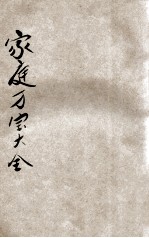 家庭万宝大全